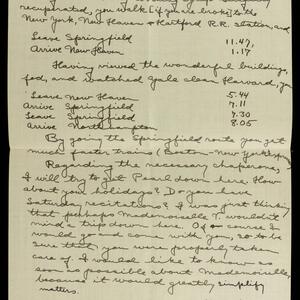 recuperated, you walk (if you are broke) to the
New York, New Haven & Hartford R.R. station, and
Leave Springfield 11.47,
Arrive New Haven 1.17
Having viewed the wonderful buildings,
fed, and watched Yale clean Harvard, you
Leave New Haven 5.44
Arrive Springfield 7.11
Leave Springfield 7.30
Arrive Northampton 8.05
By going the Springfield route you get
much faster trains (Boston - New York express)
Regarding the necessary chaperone,
I will try to get Pearl down here. How
about your holidays? Do you have
Saturday recitations? I was just thinking
that perhaps Mademoiselle T. wouldn't
mind a trip down here. Of course I
would go and come with you, so to be
sure that you were properly taken
care of. I would like to know as
soon as possible about Mademoiselle,
because it would greatly simplify
matters.